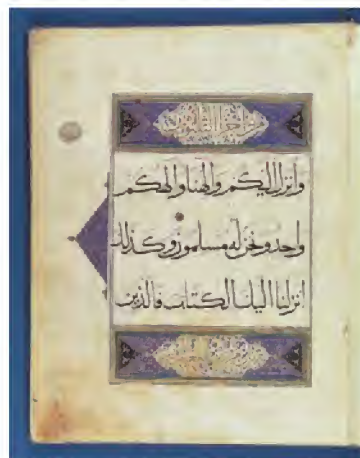 وأنزل إليكم وإلهنا وإلهكم
واحد ونحن له مسلمون وكذلك
أنزلنا إليك الكتاب فالذين